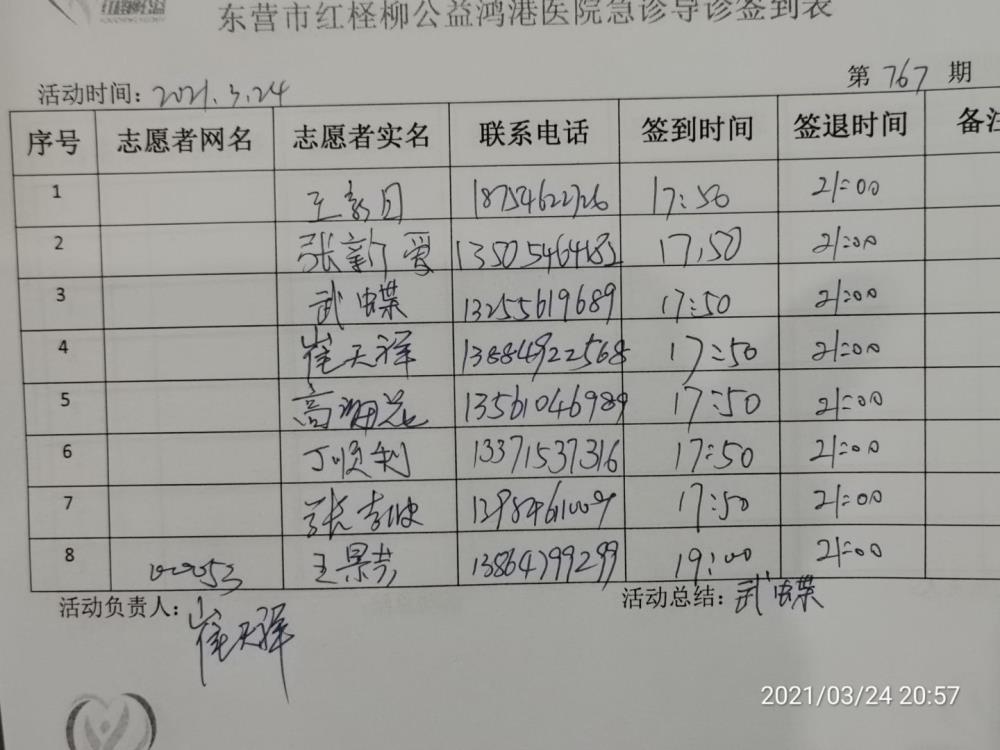 东营市红柽柳公益鸿港医院急诊导诊签到表
活动时间: 2021.3.24 第 767 期
序号 志愿者网名 志愿者实名 联系电话 签到时间 签退时间 备注
1 王 18754622726 17:50 21:00
2 张新爱 13505464182 17:50 21:00
3 武蝶 13255619689 17:50 21:00
4 崔天祥 13884922568 17:50 21:00
5 高 13561046989 17:50 21:00
6 丁顺利 13371537316 17:50 21:00
7 张 17:50 21:00
8 王景芳 13864799299 19:00 21:00
活动负责人: 崔天祥 活动总结: 武蝶
2021/03/24 20:57